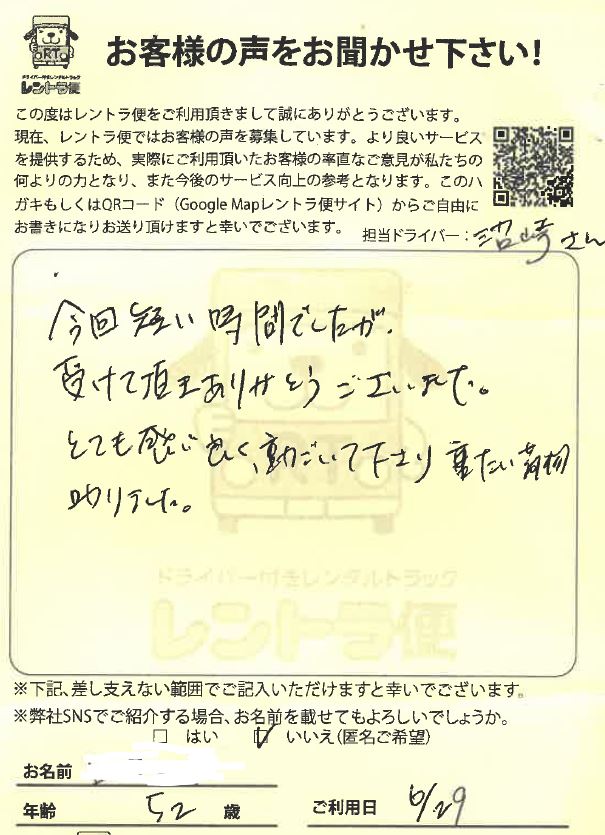 お客様の声をお聞かせ下さい!
RT
ドライバー付きレンタルトラック
レントラ便
この度はレントラ便をご利用頂きまして誠にありがとうございます。
現在、レントラ便ではお客様の声を募集しています。より良いサービス
を提供するため、実際にご利用頂いたお客様の率直なご意見が私たちの
何よりの力となり、また今後のサービス向上の参考となります。このハ
ガキもしくはQRコード（Google Mapレントラ便サイト）からご自由に
お書きになりお送り頂けますと幸いでございます。
担当ドライバー：沼崎さん
今回短い時間でしたが、
受けて頂きありがとうございました。
とても感じ良く、動いて下さり重たい荷物
助りました。
RT
ドライバー付きレンタルトラック
レントラ便
※下記、差し支えない範囲でご記入いただけますと幸いでございます。
※弊社SNSでご紹介する場合、お名前を載せてもよろしいでしょうか。
□ はい ☑ いいえ(匿名ご希望)
お名前
年齢 52 歳 ご利用日 6/29